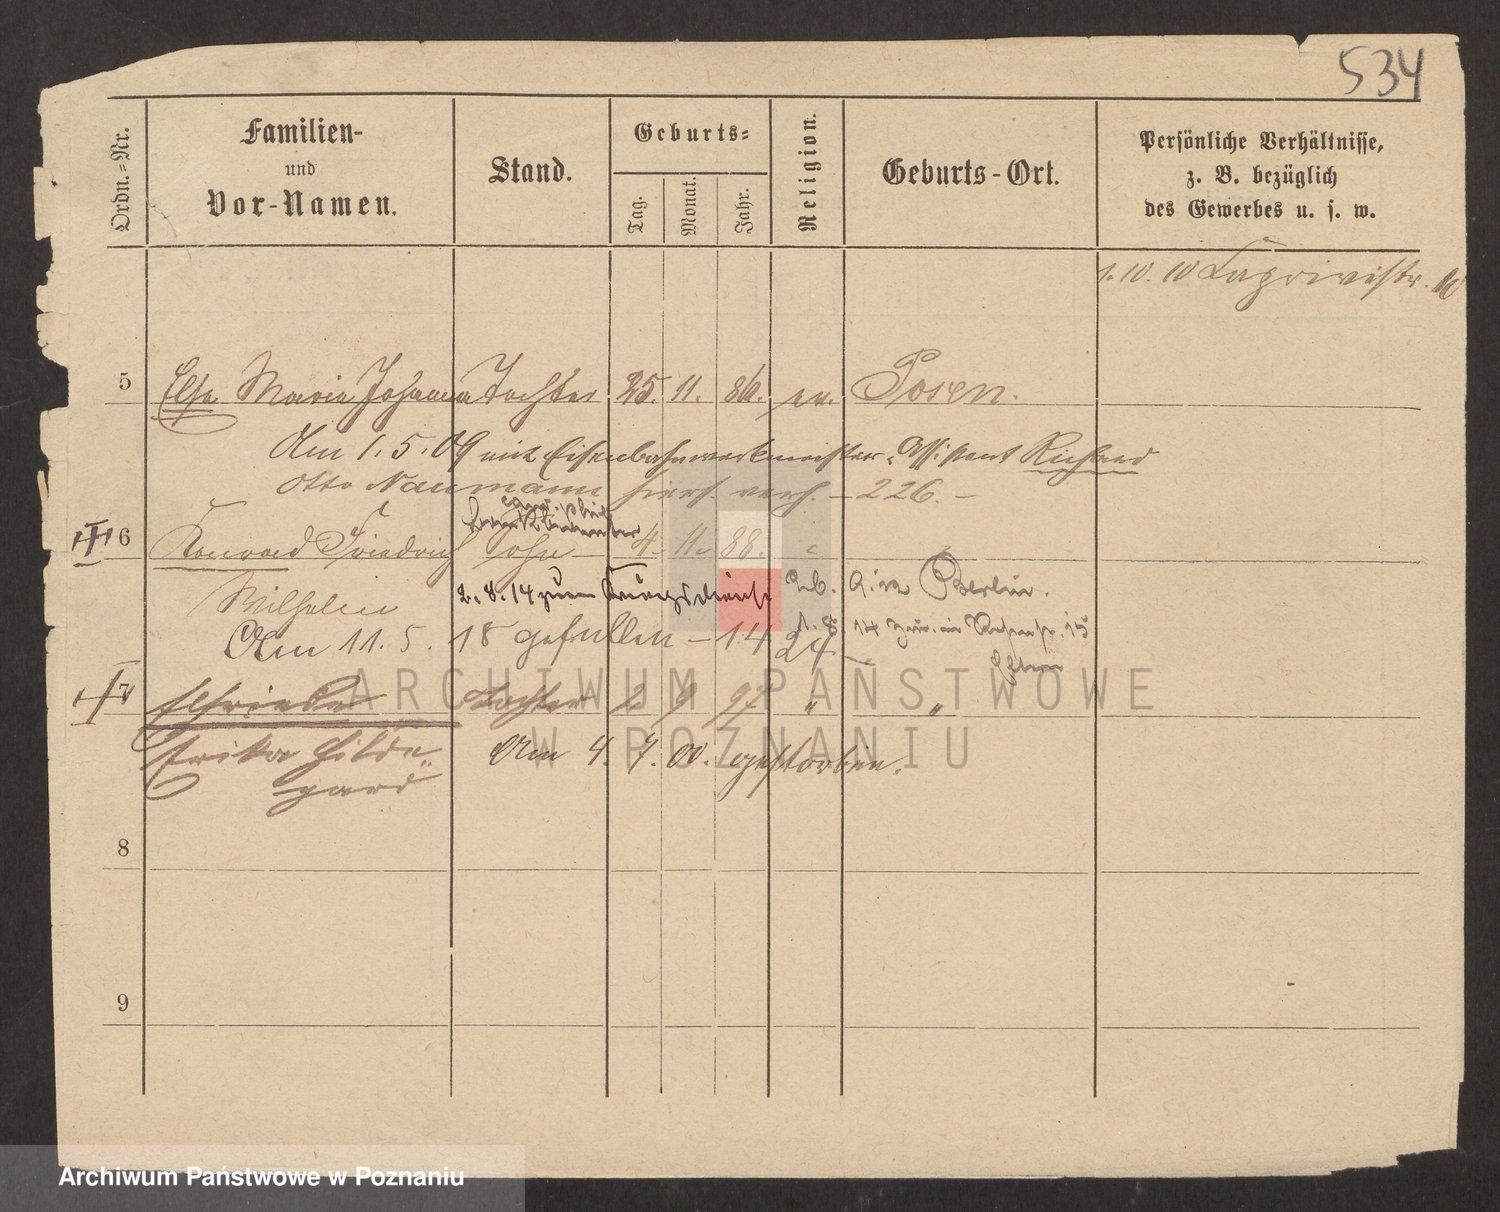 534
Ordn.-Nr.
Familien-
und
Vor-Namen.
Stand.
Geburts-
Tag.
Monat.
Jahr.
Religion.
Geburts-Ort.
Persönliche Verhältnisse,
z. B. bezüglich
des Gewerbes u. s. w.
1. 10. 10 Caprivistr. 10
5 Else Maria Johanna Tochter 25. 11. 86. ev. Posen.
Am 1. 5. 09 mit Eisenbahnwerkmeister-Assistent Richard
Otto Naumann hiers. verh. – 226. –
6 Konrad Friedrich Sohn 4. 11. 88. "
Wilhelm 2. 8. 14 zum Kriegsdienst Geb. A. in Berlin.
1. 8. 14 zur. in
Am 11. 5. 18 gefallen – 14 24 – Eltern
7 Elfriede Tochter 2 9 97 " "
Erika Hilde- Am 4. 7. 00. gestorben.
gard
8
9
ARCHIWUM PAŃSTWOWE
W POZNANIU
Archiwum Państwowe w Poznaniu